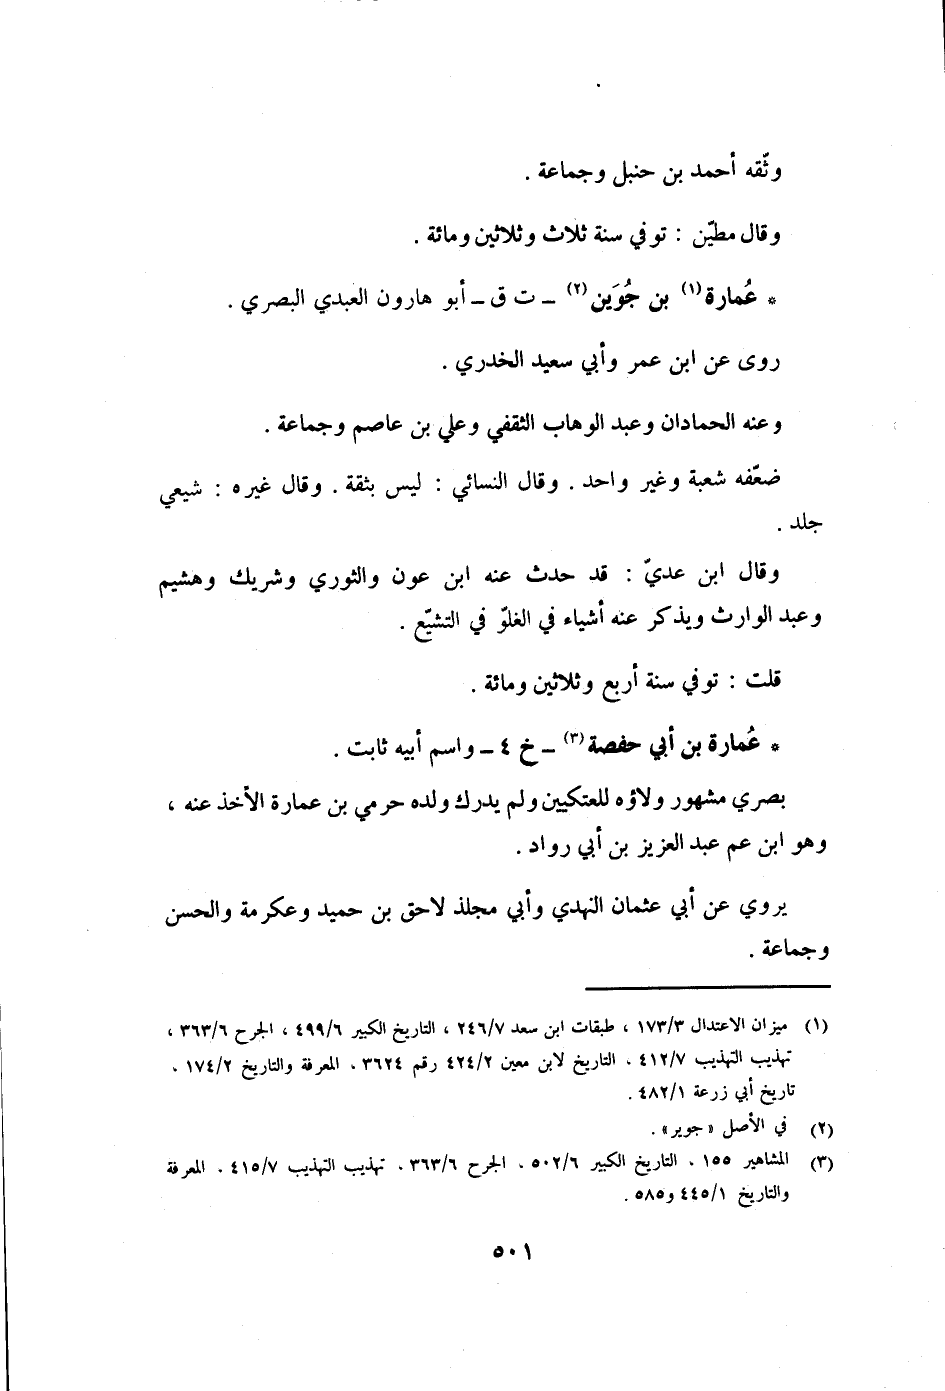 وثّقه أحمد بن حنبل وجماعة .
وقال مطيّن : توفي سنة ثلاث وثلاثين ومائة .
* عُمارة (١) بن جُوَين (٢) ـ ت ق ـ أبو هارون العبدي البصري .
روى عن ابن عمر وأبي سعيد الخدري .
وعنه الحمادان وعبد الوهاب الثقفي وعلي بن عاصم وجماعة .
ضعّفه شعبة وغير واحد . وقال النسائي : ليس بثقة . وقال غيره : شيعي
جلد .
وقال ابن عديّ : قد حدث عنه ابن عون والثوري وشريك وهشيم
وعبد الوارث ويذكر عنه أشياء في الغلوّ في التشيّع .
قلت : توفي سنة أربع وثلاثين ومائة .
* عُمارة بن أبي حفصة (٣) ـ خ ٤ ـ واسم أبيه ثابت .
بصري مشهور ولاؤه للعتكيين ولم يدرك ولده حرمي بن عمارة الأخذ عنه ،
وهو ابن عم عبد العزيز بن أبي رواد .
يروي عن أبي عثمان النهدي وأبي مجلذ لاحق بن حميد وعكرمة والحسن
وجماعة .
(١) ميزان الاعتدال ١٧٣/٣ ، طبقات ابن سعد ٢٤٦/٧ ، التاريخ الكبير ٤٩٩/٦ ، الجرح ٣٦٣/٦ ،
تهذيب التهذيب ٤١٢/٧ . التاريخ لابن معين ٤٢٤/٢ رقم ٣٦٢٤ . المعرفة والتاريخ ١٧٤/٢ .
تاريخ أبي زرعة ٤٨٢/١ .
(٢) في الأصل «جوير» .
(٣) المشاهير ١٥٥ . التاريخ الكبير ٥٠٢/٦ . الجرح ٣٦٣/٦ . تهذيب التهذيب ٤١٥/٧ . المعرفة
والتاريخ ٤٤٥/١ و٥٨٥ .
٥٠١